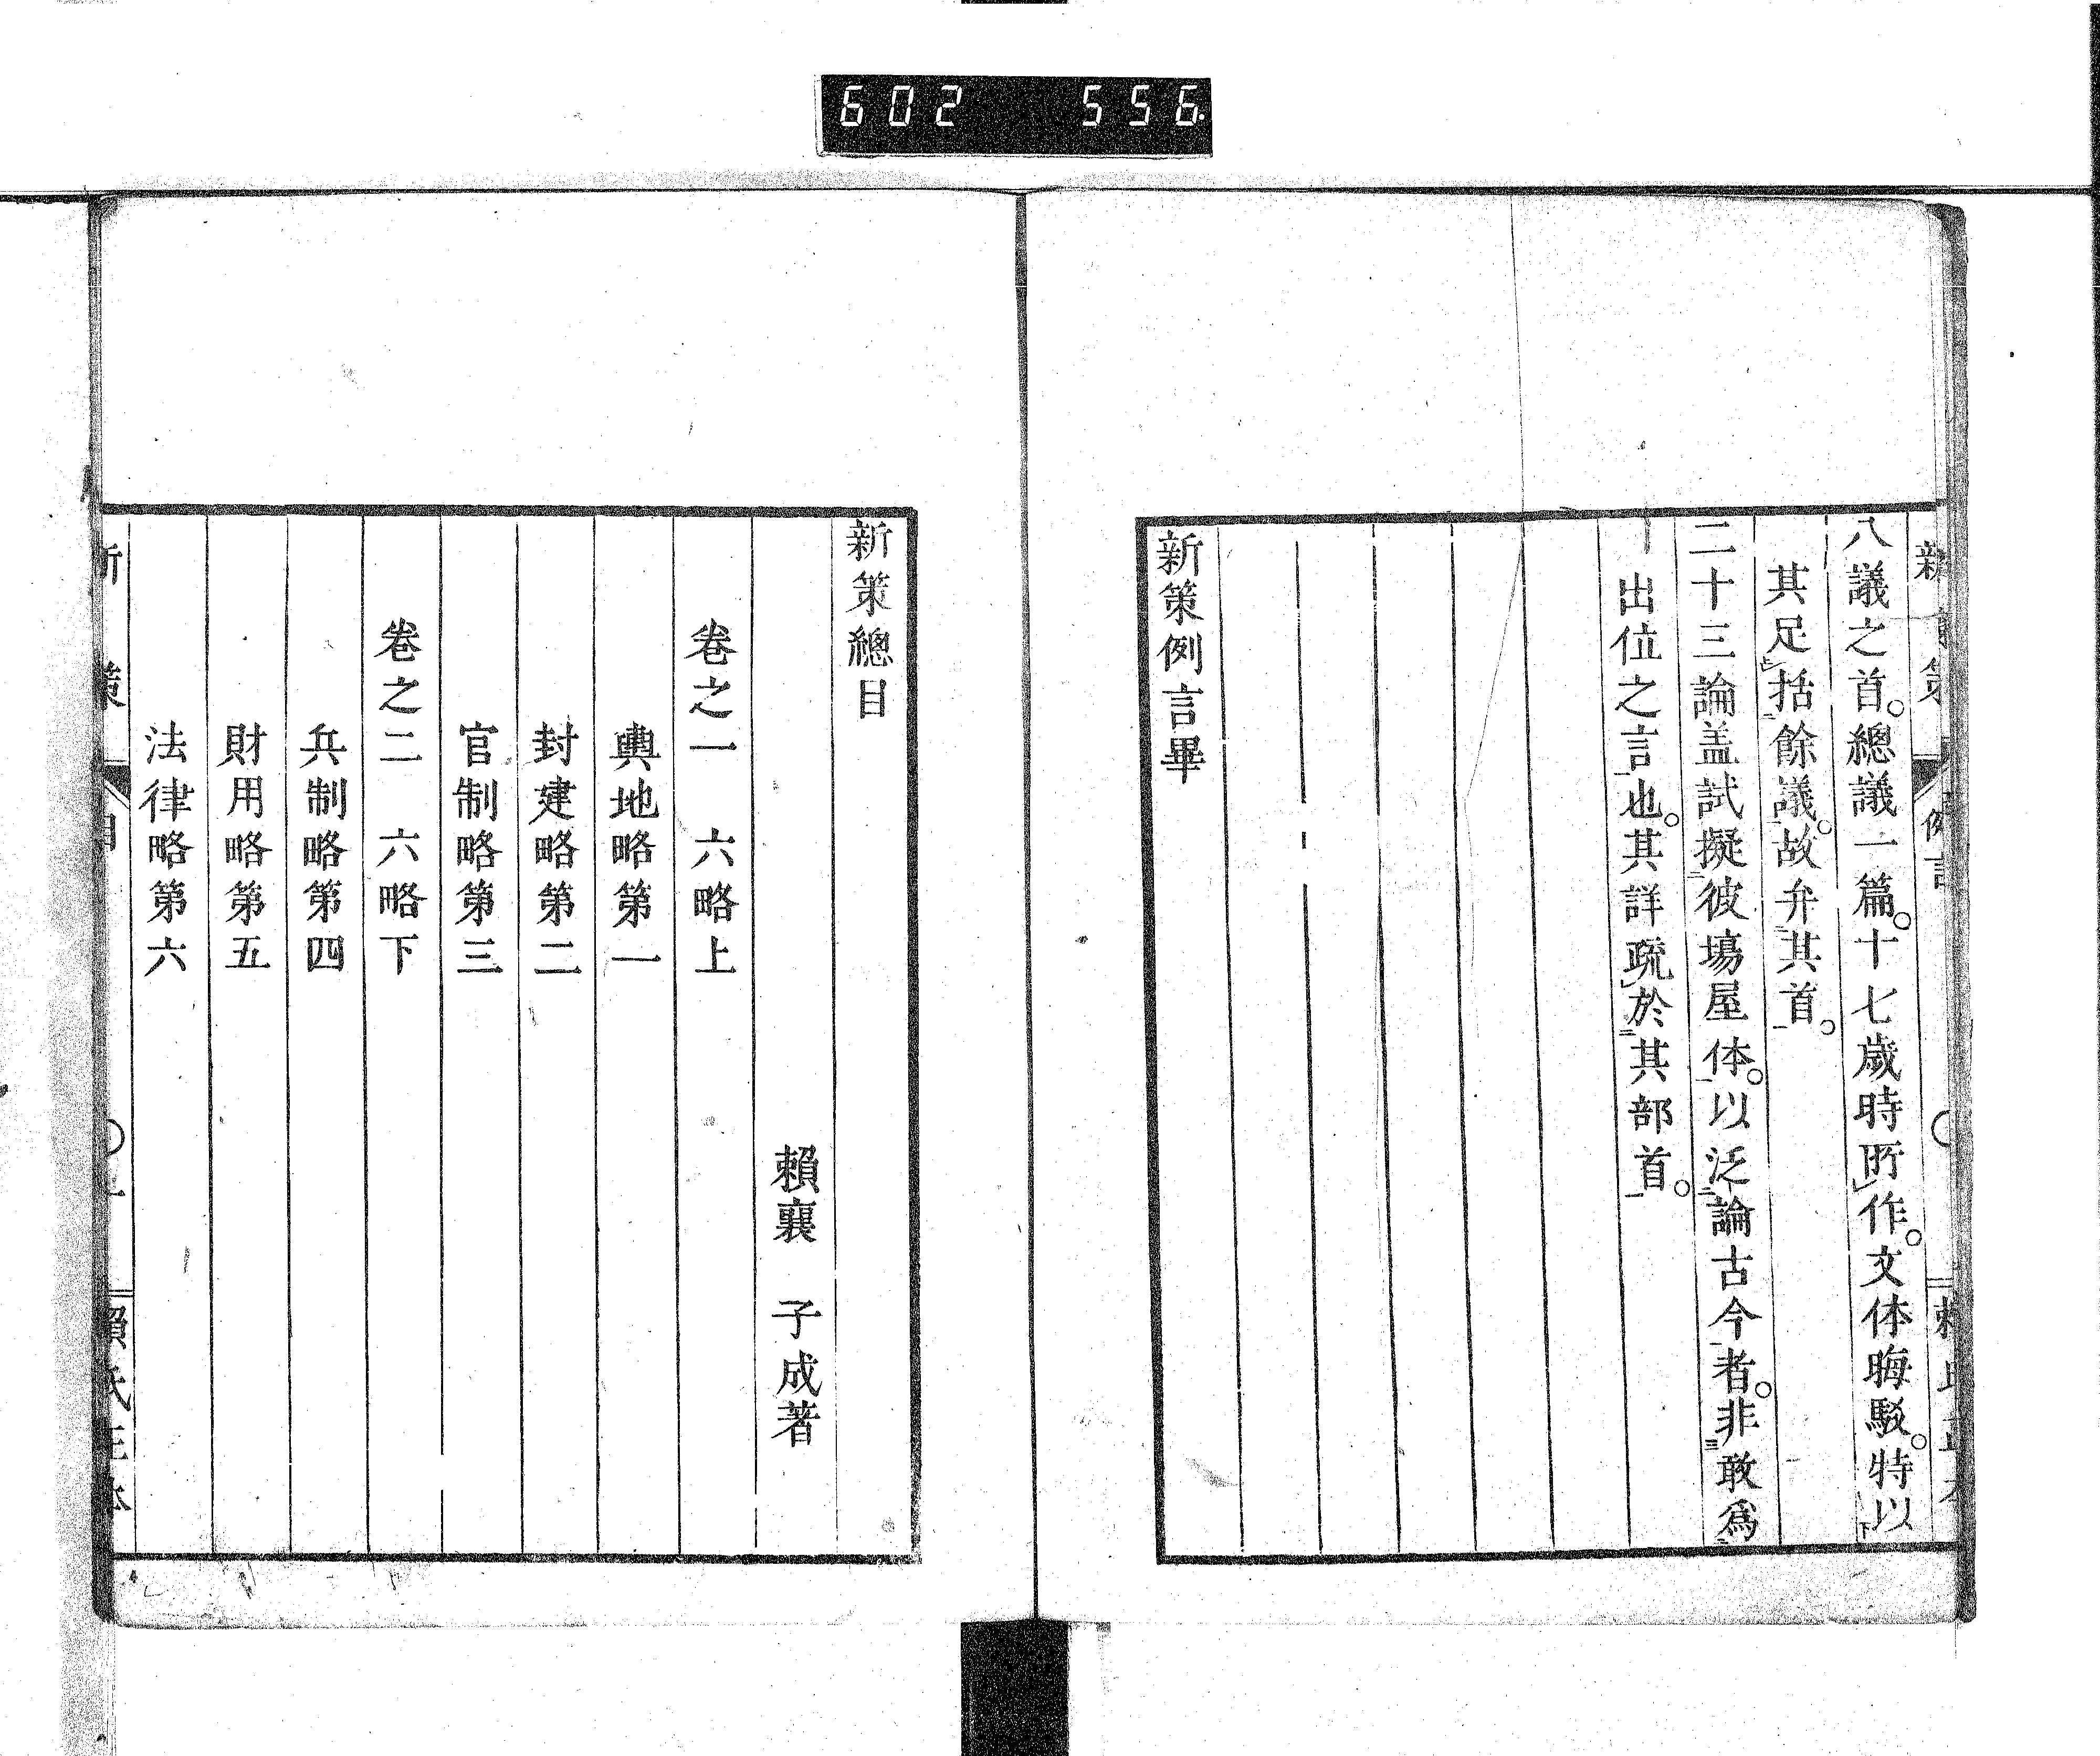 602 556
八議之首。總議一篇。十七歲時所作。文体晦駁。特以
其足括餘議。故弁其首。
二十三論盖試擬彼塲屋体。以泛論古今者。非敢爲
出位之言也。其詳疏於其部首。
新策例言畢
新策總目
賴襄 子成著
卷之一 六略上
輿地略第一
封建略第二
官制略第三
卷之二 六略下
兵制略第四
財用略第五
法律略第六